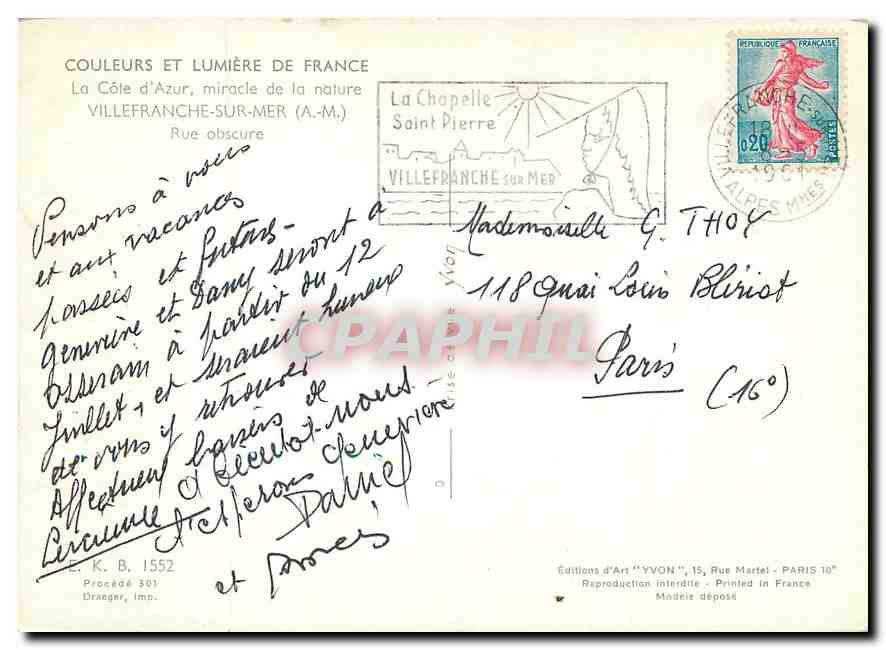 COULEURS ET LUMIÈRE DE FRANCE
La Côte d'Azur, miracle de la nature
VILLEFRANCHE-SUR-MER (A.-M.)
Rue obscure
La Chapelle
Saint Pierre
VILLEFRANCHE SUR MER
REPUBLIQUE FRANÇAISE
0,20
POSTES
VILLEFRANCHE-SUR-
ALPES MMES
Pensons à vous
et aux vacances
passées et futures -
Geneviève et Dany seront à
à partir du 12
Juillet, et seraient heureux
de vous y retrouver
Affectueux baisers de
A bientôt nous
l'espérons Geneviève
Daniel
et
Mademoiselle G. THOY
118 Quai Louis Blériot
Paris
(16°)
yvon
CPAPHIL
E. K. B. 1552
Procédé 301
Draeger, imp.
Éditions d'Art "YVON", 15, Rue Martel - PARIS 10e
Reproduction interdite - Printed in France
Modèle déposé